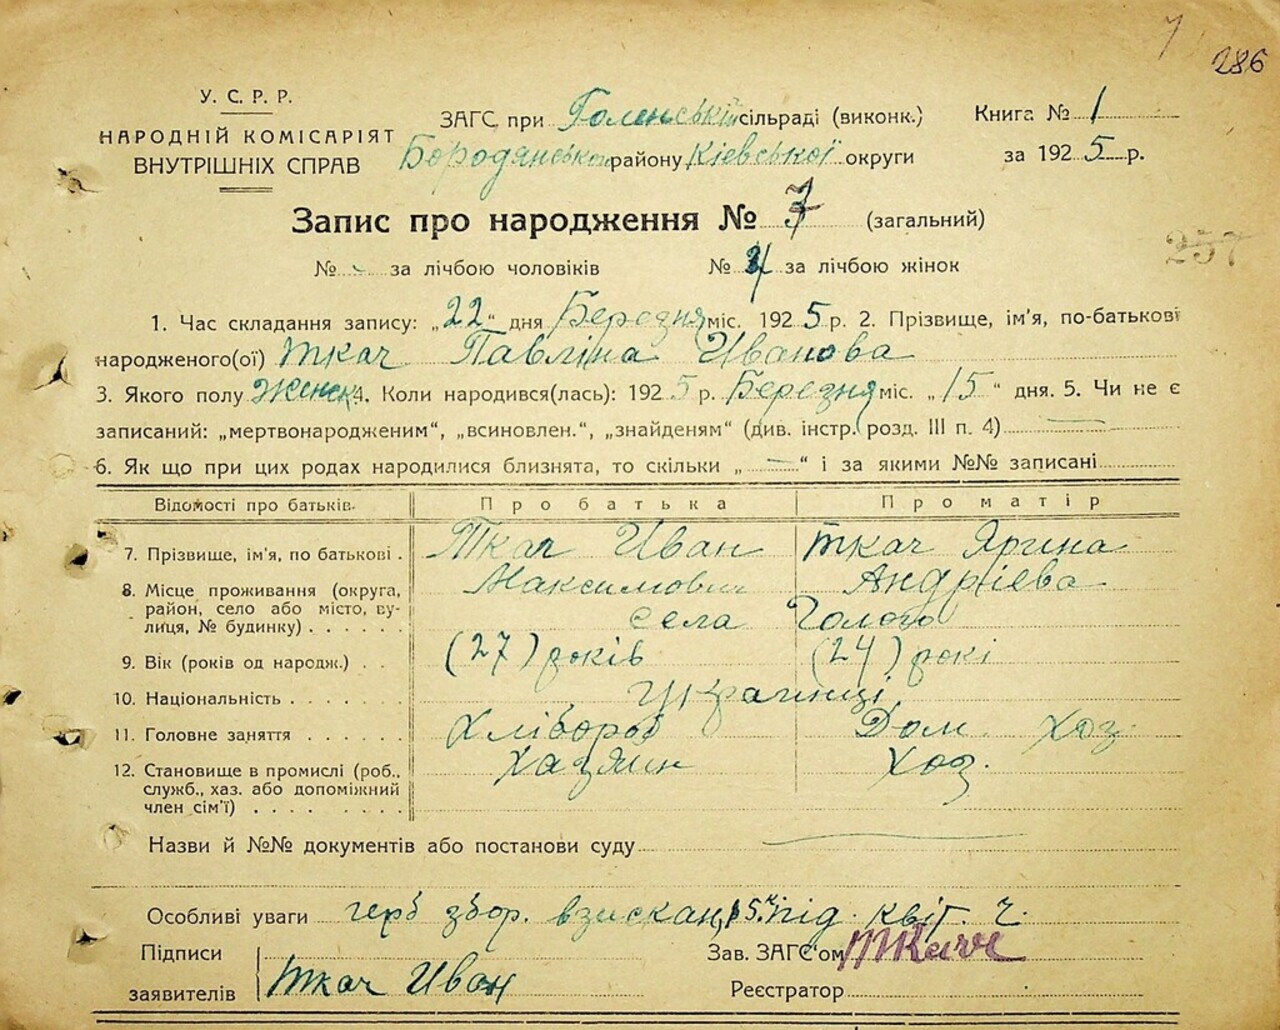 7
286
У. С. Р. Р.
НАРОДНІЙ КОМІСАРІЯТ
ВНУТРІШНІХ СПРАВ
ЗАГС при Голенській сільраді (виконк.)
Бородянськ району Кіевської округи
Книга № 1
за 1925 р.
Запис про народження № 7 (загальний)
257
№ за лічбою чоловіків № 4 за лічбою жінок
1. Час складання запису: „22“ дня Березня міс. 1925 р. 2. Прізвище, ім'я, по-батькові
народженого(ої) Ткач Павліна Иванова
3. Якого полу Женск 4. Коли народився(лась): 1925 р. Березня міс. „15“ дня. 5. Чи не є
записаний: „мертвонародженим“, „всиновлен.“, „знайденям“ (див. інстр. розд. III п. 4)
6. Як що при цих родах народилися близнята, то скільки „—“ і за якими №№ записані
Відомості про батьків. Про батька Про матір
7. Прізвище, ім'я, по батькові . Ткач Иван Ткач Ярина
Максимович Андріева
8. Місце проживання (округа,
район, село або місто, ву-
лиця, № будинку) . . . . . . села
9. Вік (років од народж.) . . (27) років (24) рокі
10. Національність . . . . . . . Украинці
11. Головне заняття . . . . . . Хлібороб Дом. хоз.
12. Становище в промислі (роб., Хазяин Хоз.
служб., хаз. або допоміжний
член сім'ї) . . . . . . . .
Назви й №№ документів або постанови суду
Особливі уваги герб збор. взискан, 15 к під. квіт. ч.
Підписи
заявителів Ткач Иван
Зав. ЗАГС'ом Ткач
Реєстратор